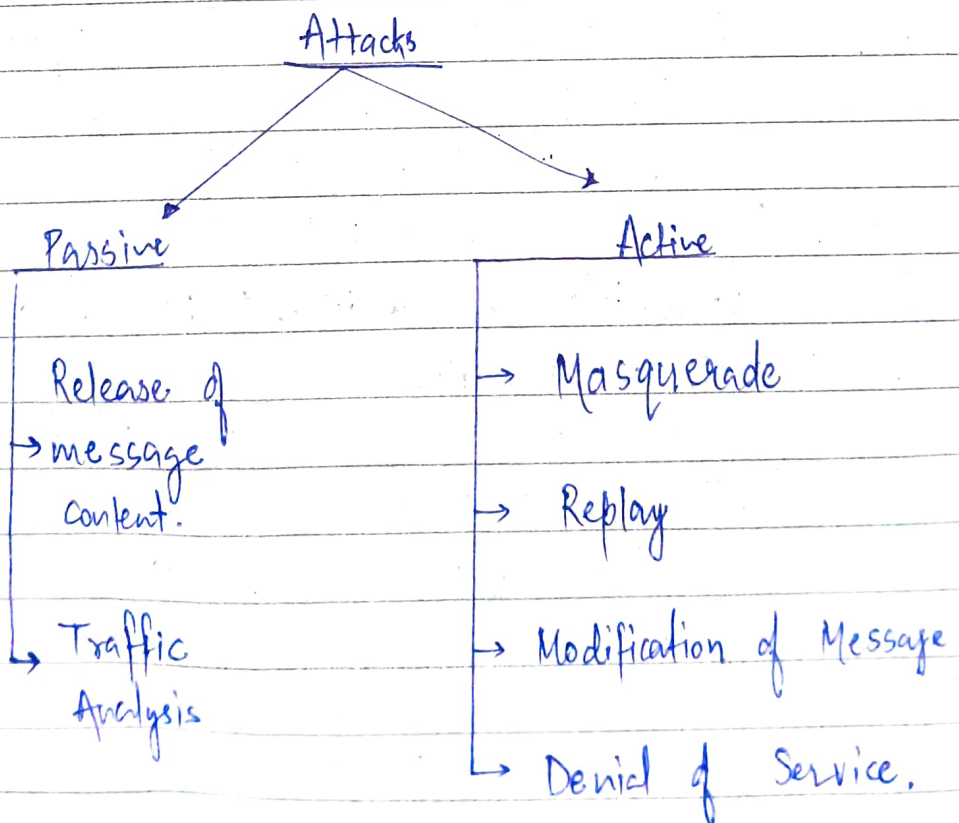 Attacks
Passive
Release of
message
content.
Traffic
Analysis
Active
Masquerade
Replay
Modification of Message
Denial of Service.